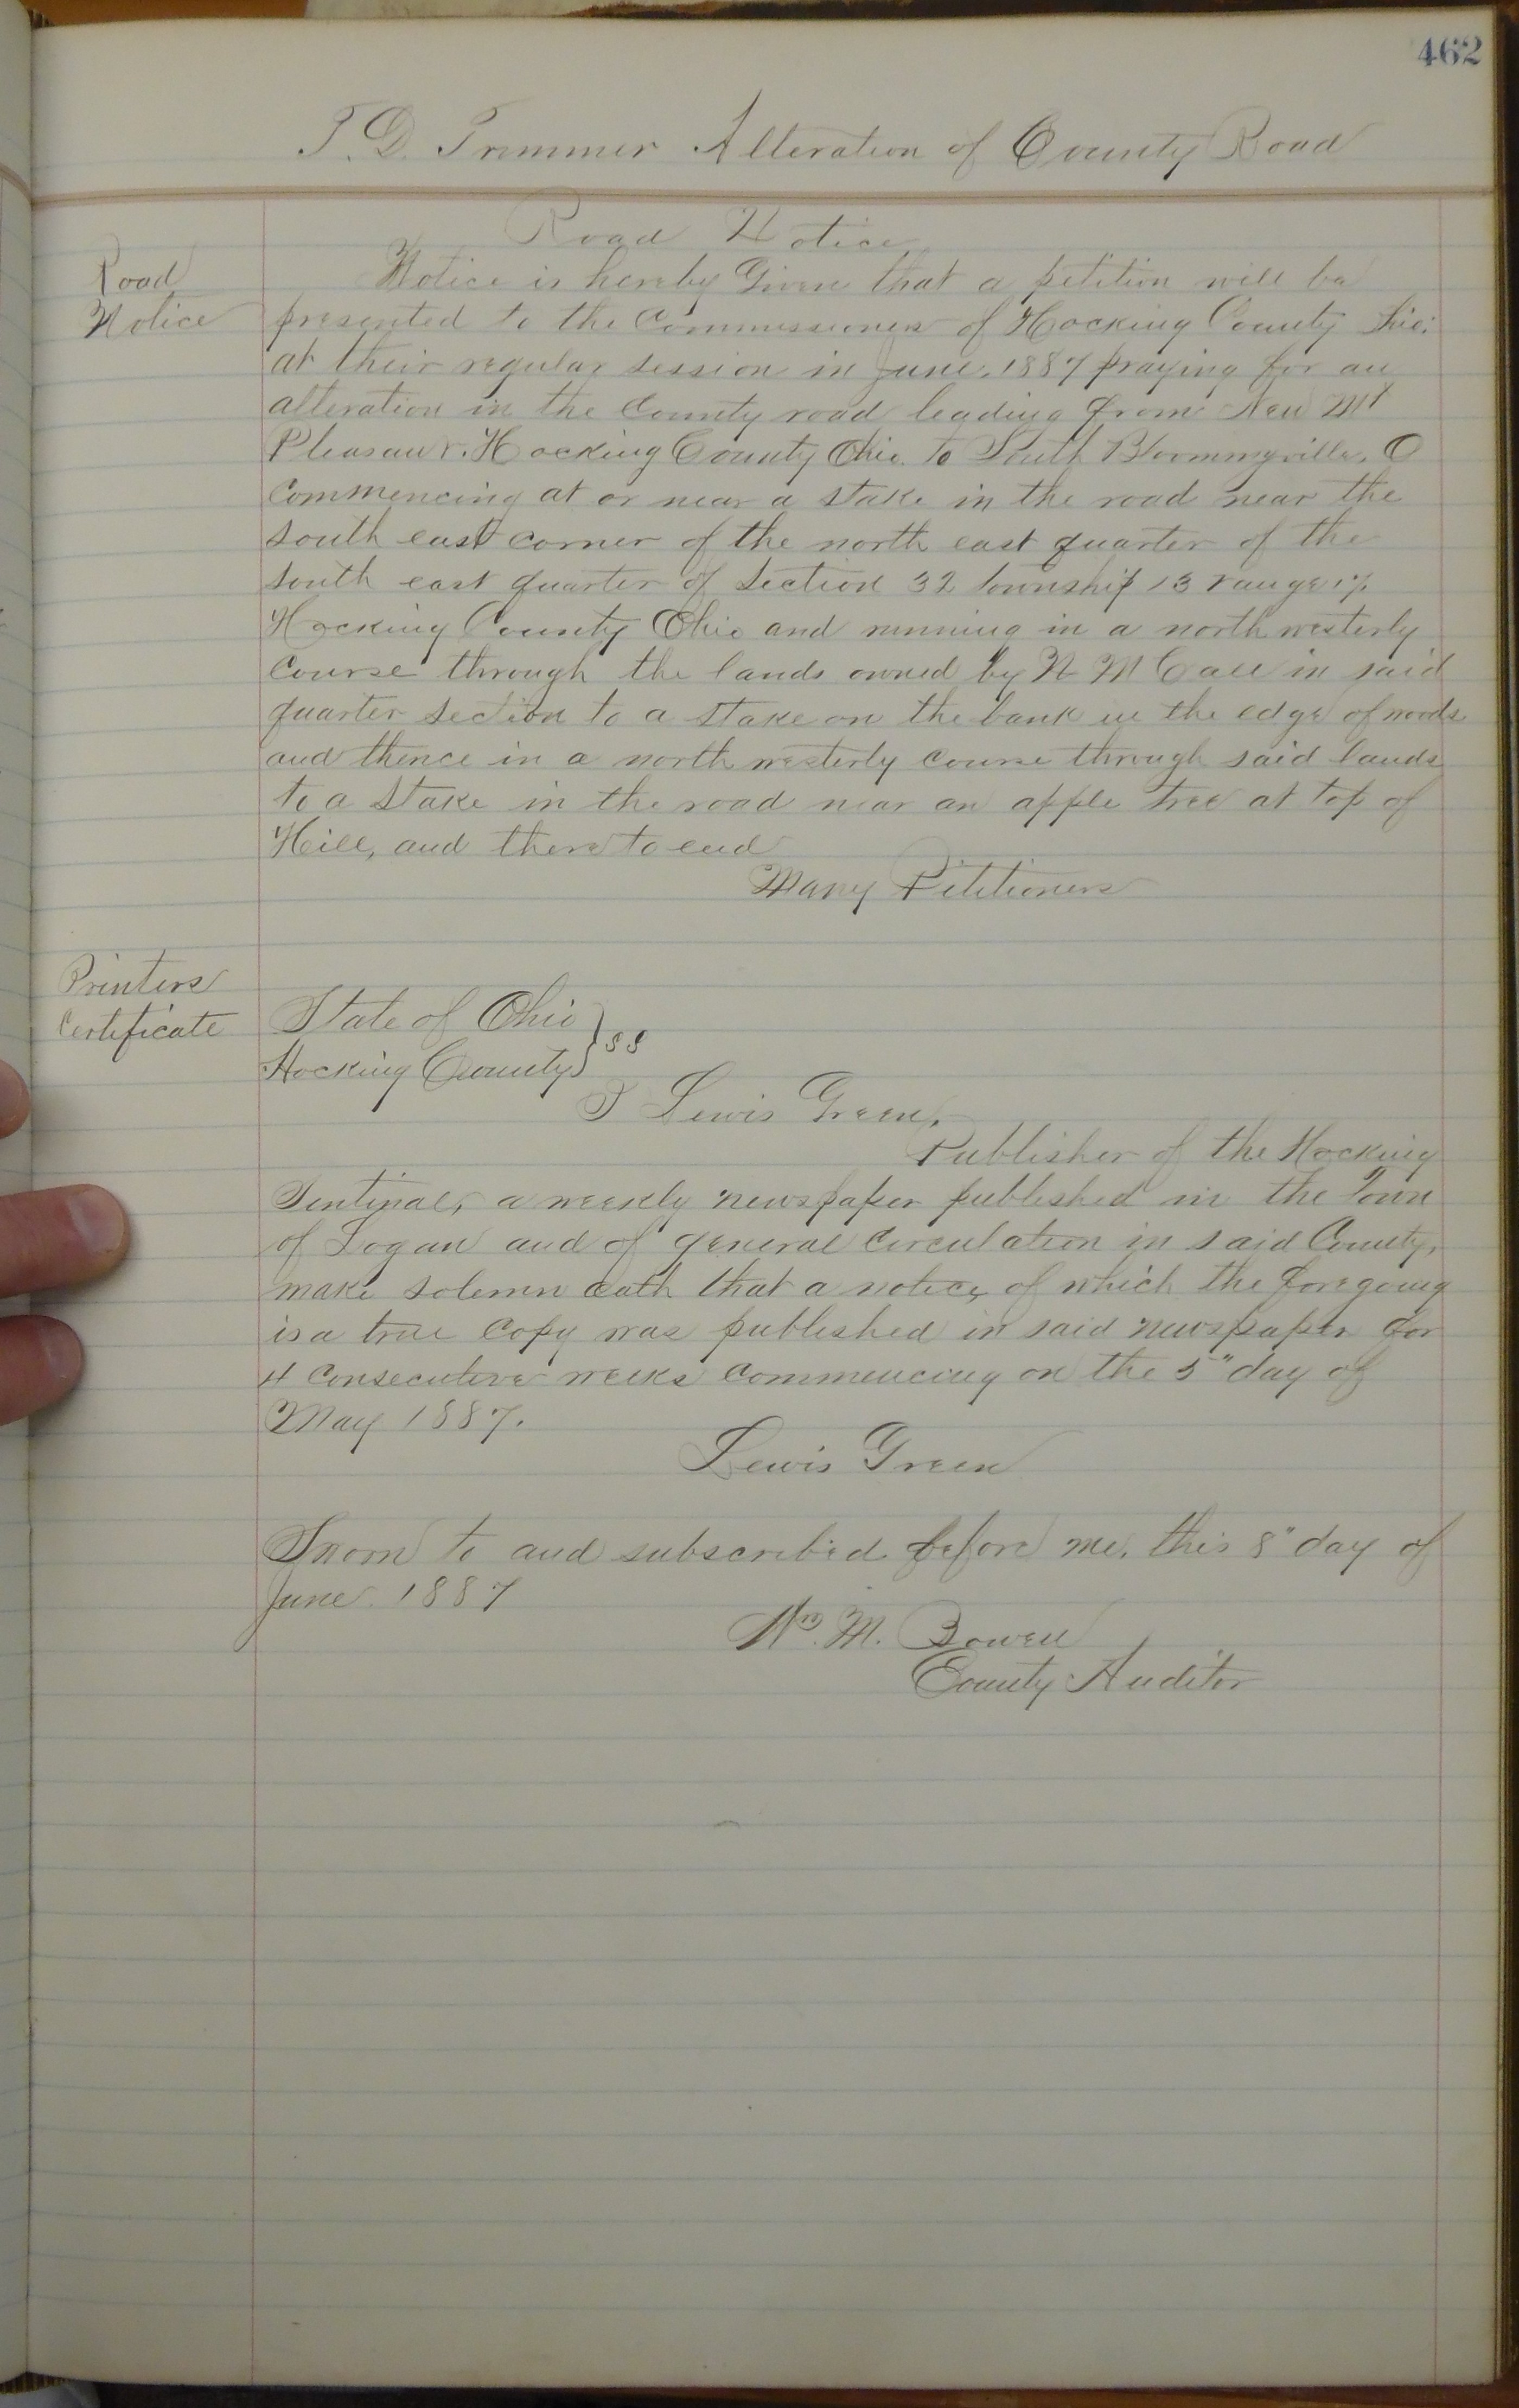 462
T. D. Trimmer Alteration of County Road
Road Notice
Road
Notice
Notice is hereby Given that a petition will be
presented to the Commissioners of Hocking County Ohio:
at their regular session in June. 1887 praying for an
alteration in the County road leading from New Mt
Pleasant. Hocking County Ohio. to South Bloommyville, O
Commencing at or near a stake in the road near the
south east corner of the north east quarter of the
south east quarter of Section 32 township 13 range 17.
Hocking County Ohio and running in a north westerly
course through the lands owned by N M Call in said
quarter section to a stake on the bank in the edge of woods
and thence in a north westerly course through said lands
to a stake in the road near an apple tree at top of
Hill, and there to end
Many Petitioners
Printers
Certificate
State of Ohio
Hocking County } SS
I Lewis Green,
Publisher of the Hocking
Sentinal, a weekly newspaper published in the Town
of Logan and of general circulation in said County,
make solemn oath that a notice, of which the foregoing
is a true copy was published in said newspaper for
4 Consecutive weeks commencing on the 5" day of
May 1887.
Lewis Green
Sworn to and subscribed before me, this 8" day of
June. 1887
Wm. M. Bowen
County Auditor